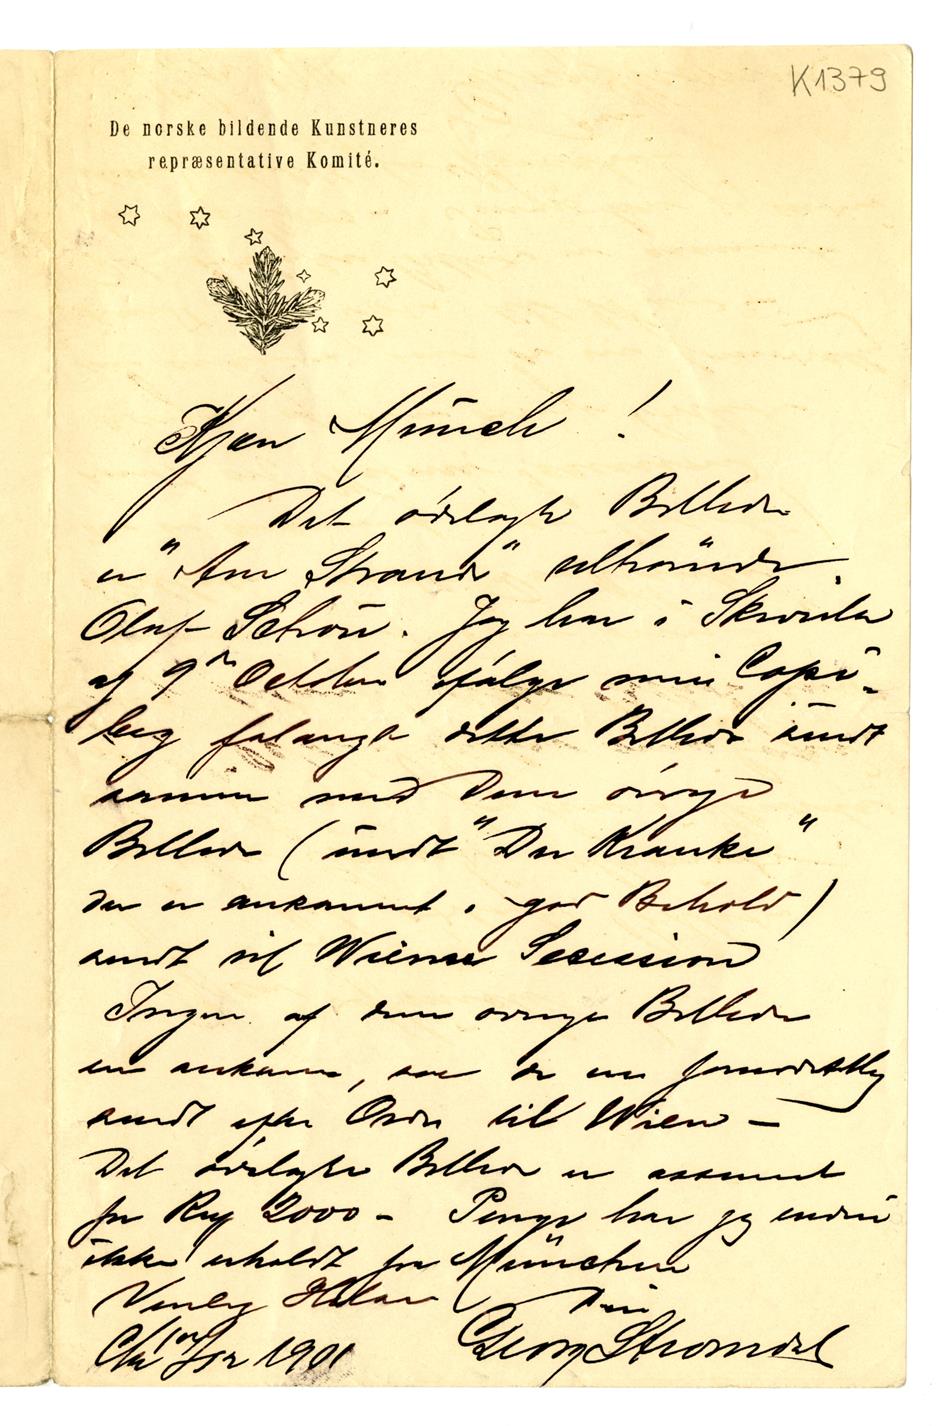 K1379
De norske bildende Kunstneres
repræsentative Komité.
Kjære Munch!
Det ødelagte Billede
er "Am Strand" tilhørende
Olaf Schou. Jeg har i Skrivelse
af 9de October ifølge min Copi-
bog forlangt dette Billede sendt
sammen med Dine øvrige
Billeder (undt "Das Kranke"
der er ankommet i god Behold)
sendt til Wiener Secession
Ingen af dine øvrige Billeder
er ankomne, saa de ere formodentlig
sendt efter Ordre til Wien –
Det ødelagte Billede er assureret
for 2000 – Penge har jeg endnu
ikke erholdt fra München
Venlig Hilsen
Din
Georg Stromdal
Chra 1901